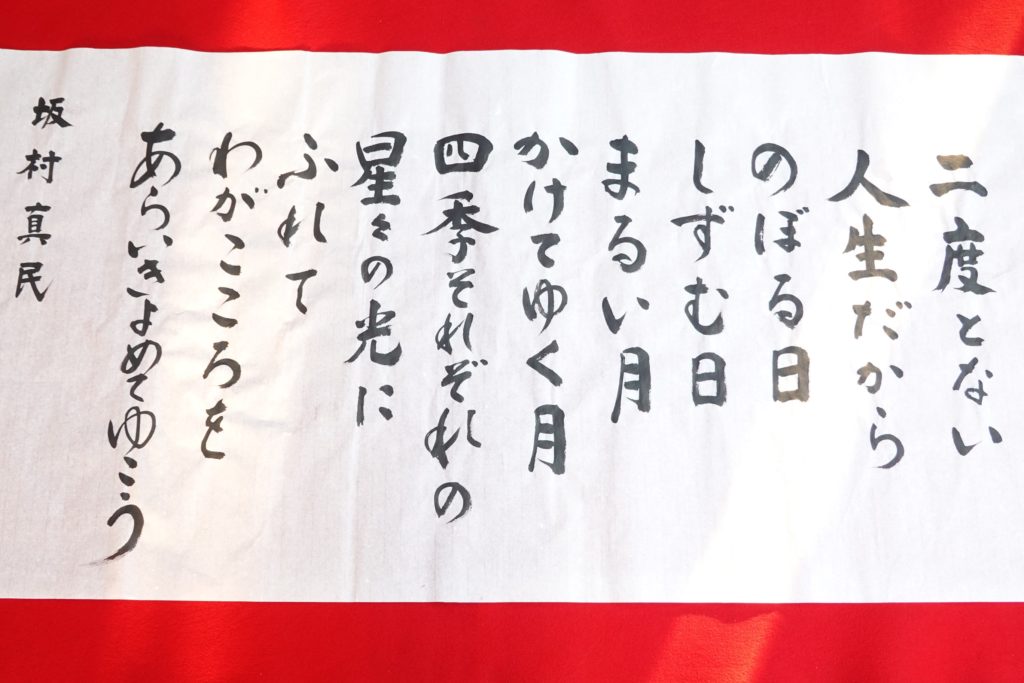 二度とない
人生だから
のぼる日
しずむ日
まるい月
かけてゆく月
四季それぞれの
星々の光に
ふれて
わがこころを
あらいきよめてゆこう
坂村真民